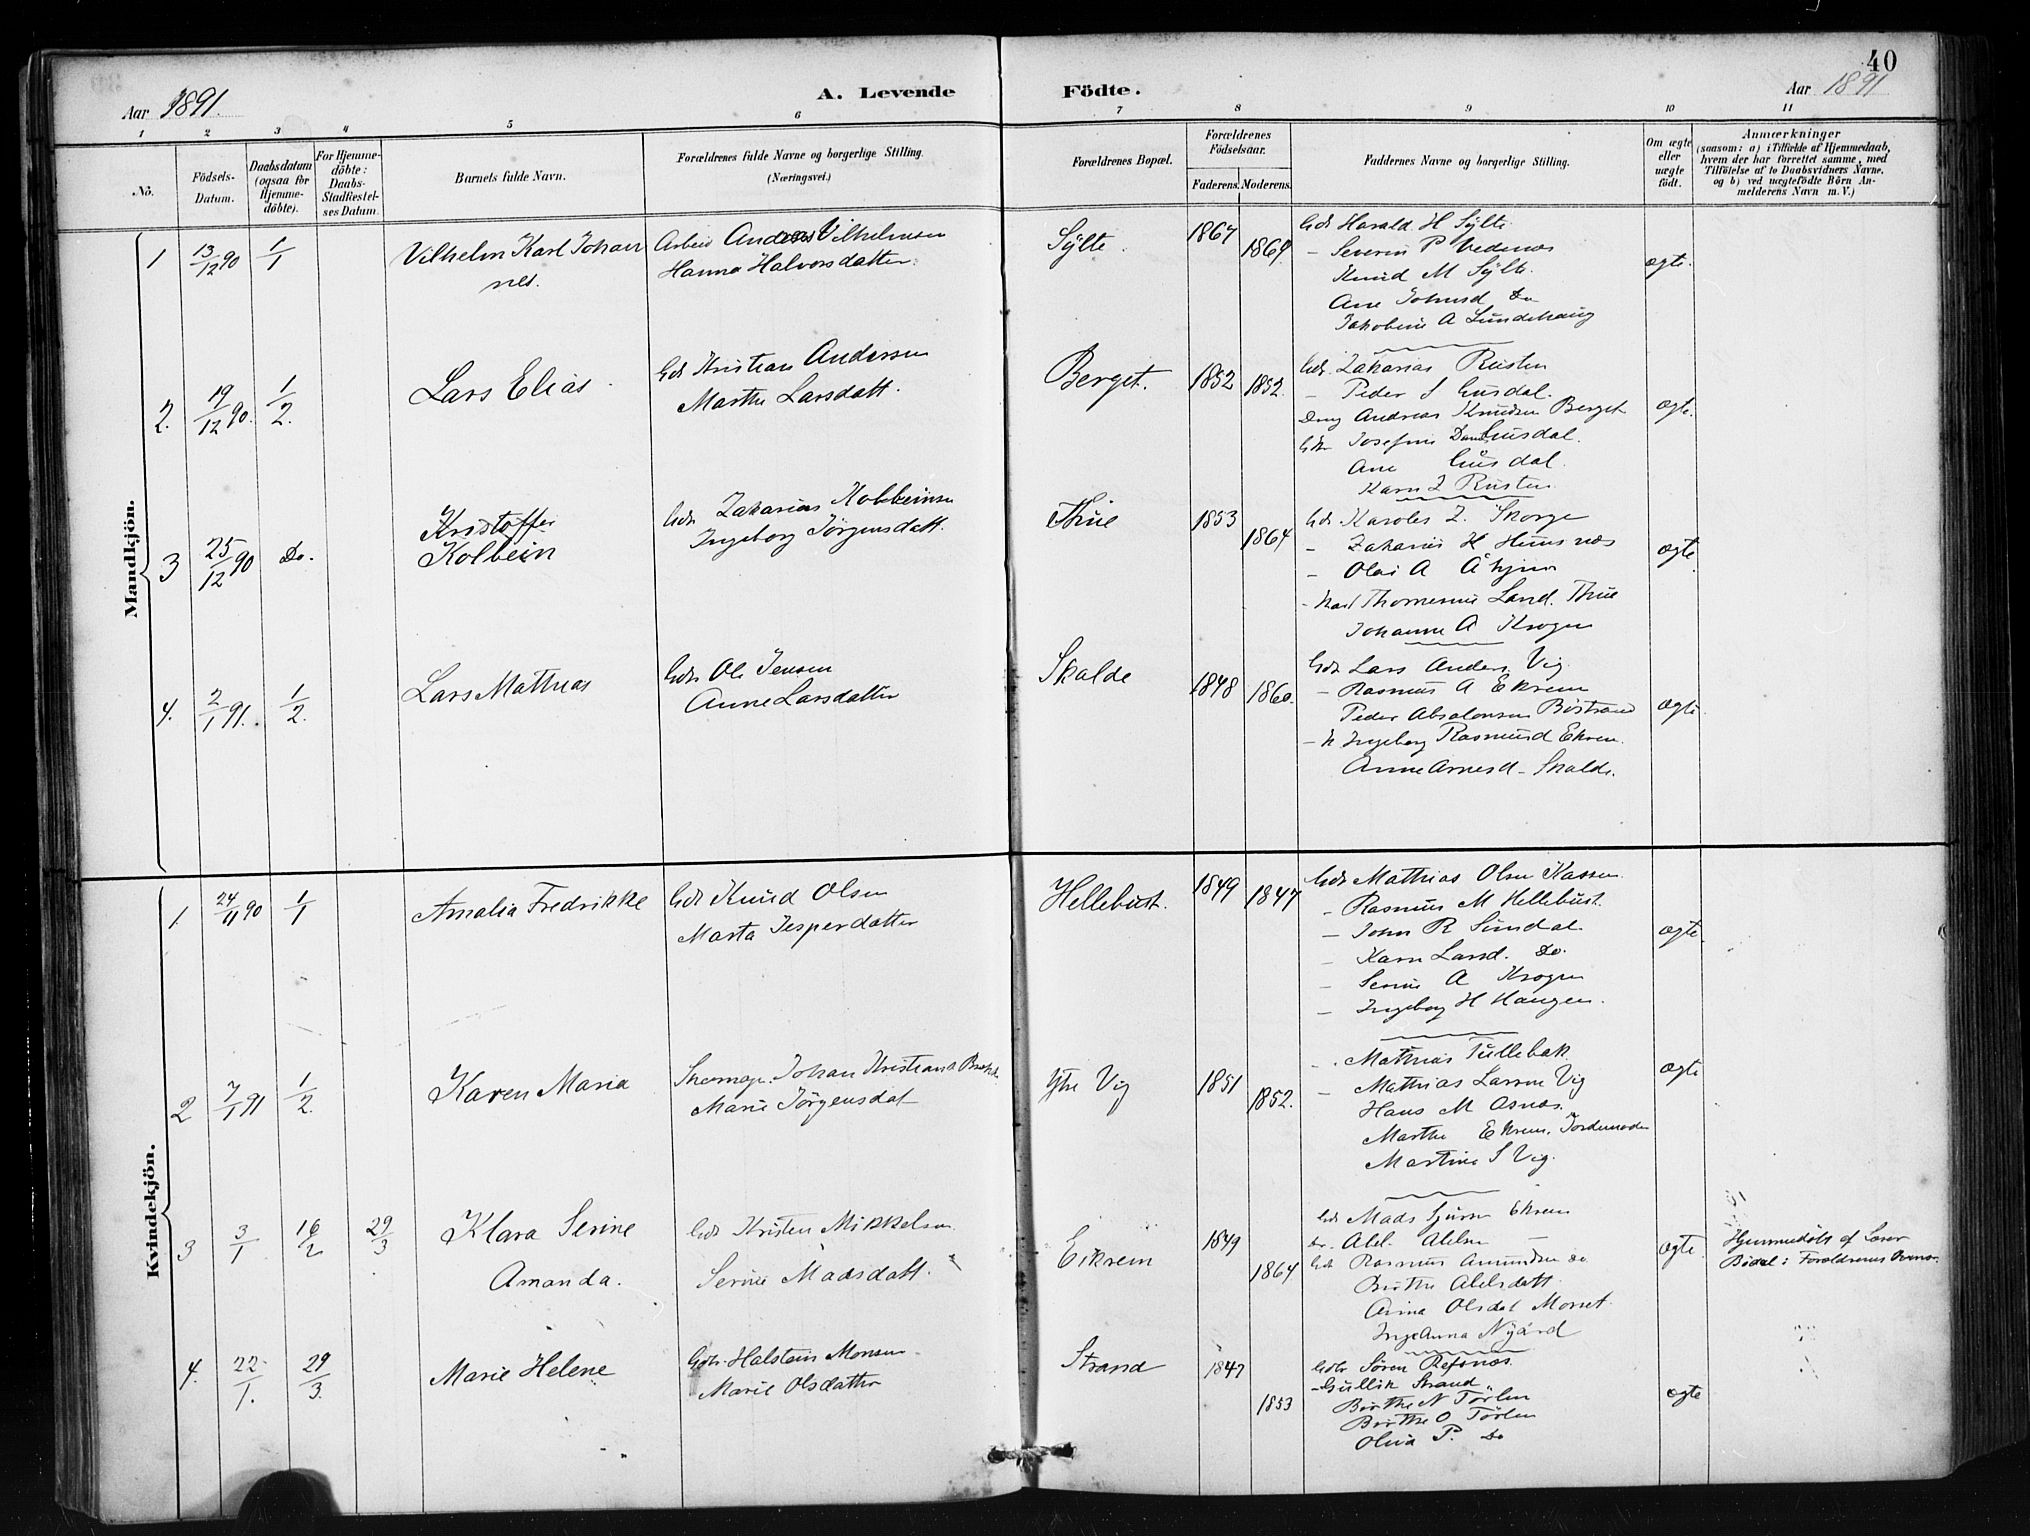 40
Aar 1891.
A. Levende
Födte.
Aar 1891
1 2 3 4 5 6 7 8 9 10 11
No.
Födsels-Datum.
Daabsdatum (ogsaa for Hjemme-döbte).
For Hjemme-döbte: Daabs-Stadfæstel-ses Datum.
Barnets fulde Navn.
Forældrenes fulde Navne og borgerlige Stilling. (Næringsvei.)
Forældrenes Bopæl.
Forældrenes Födselsaar.
Faderens. Moderens.
Faddernes Navne og borgerlige Stilling.
Om ægte eller uægte födt.
Anmærkninger
(saasom: a) i Tilfælde af Hjemmedaab,
hvem der har forrettet samme, med
Tilföielse af to Daabsvidners Navne,
og b) ved uægtefödte Börn An-
melderens Navn m. V.)
Mandkjön.
1 13/12 90 1/1
Vilhelm Karl Johan
nes.
Arbeid Anders Vilhelmsen
Hanna Halvorsdatter.
Sylte. 1867 1869.
Gdr Harald H Sylte
- Severin P Vedenæs
Knud M Sylte.
Ane Johnsd Do
Jakobine A Lundehaug
ægte.
2. 19/12 90. 1/2.
Lars Elias.
Gdr Kristian Andersen
Marthe Larsdatt.
Berget. 1852 1852.
Gdr. Zakarias Rusten
- Peder S Gusdal.
Drng Andreas Knudsen Berget
Josefine Gusdal.
Ane Gusdal.
Karn Z Rusten
ægte.
3 25/12 90 Do.
Kristoffer
Kolbein
Gdr Zakarias Kolbeinsen
Ingeborg Jörgensdatt.
Thue 1853 1864
Gdr Karoles Z. Skorge
- Zakarias H Husnæs
- Olai A
Thomesine Larsd. Thue
Johanne A Krogen
ægte.
4. 2/1 91. 1/2.
Lars Mathias
Gdr Ole Jensen
Anne Larsdatter
Skalde 1848 1860.
Gdr Lars Anders. Vig
- Rasmus A Ekrem
Peder Absalonsen Böstrand
- K Ingeborg Rasmusd Ekrem.
Anne Arnesd - Skalde.
ægte.
Kvindekjön.
1. 24/11 90 1/1
Amalia Fredrikke
Gdr Knud Olsen
Marta Jesperdatter
Hellebust. 1849 1847
Gdr Mathias Olsen Kassen
- Rasmus M Hellebust.
- John R Sundal
- Karn Larsd. Do.
- Serine A Krogen
- Ingeborg H Haugen.
ægte.
2 7/1 91 1/2.
Karen Maria
Skomager. Johan Kristians
Marie Jörgensdat
Ytre Vig 1851 1852.
- Mathias Tullebak
- Mathias Larsen Vig
Hans M Osnæs.
Marthe Ekrem. Jordemoder
Martine S Vig.
ægte
3 3/1 16/2 29/3
Klara Serine
Amanda.
Gdr Kristen Mikkelsen
Serine Madsdatt.
Eikrem 1849 1864
Gdr Mads Sjursen Ekrem
Abel Abelsen -
Gdr Rasmus Amundsen Do
Birthe Abelsdatt
Anna Olsdat Monset.
Inge Anna Nygård
ægte
Hjemmedöbt af Lærer
Bödal: Forældrenes
4. 22/1. 29/3.
Marie Helene
Gdr. Halstein Monsen
Marie Olsdatter
Strand 1847 1853
Gdr Sören Refsnæs.
- Gullik Strand
Birthe N Törlen
Birthe O Törlen
Olina P. Do
ægte